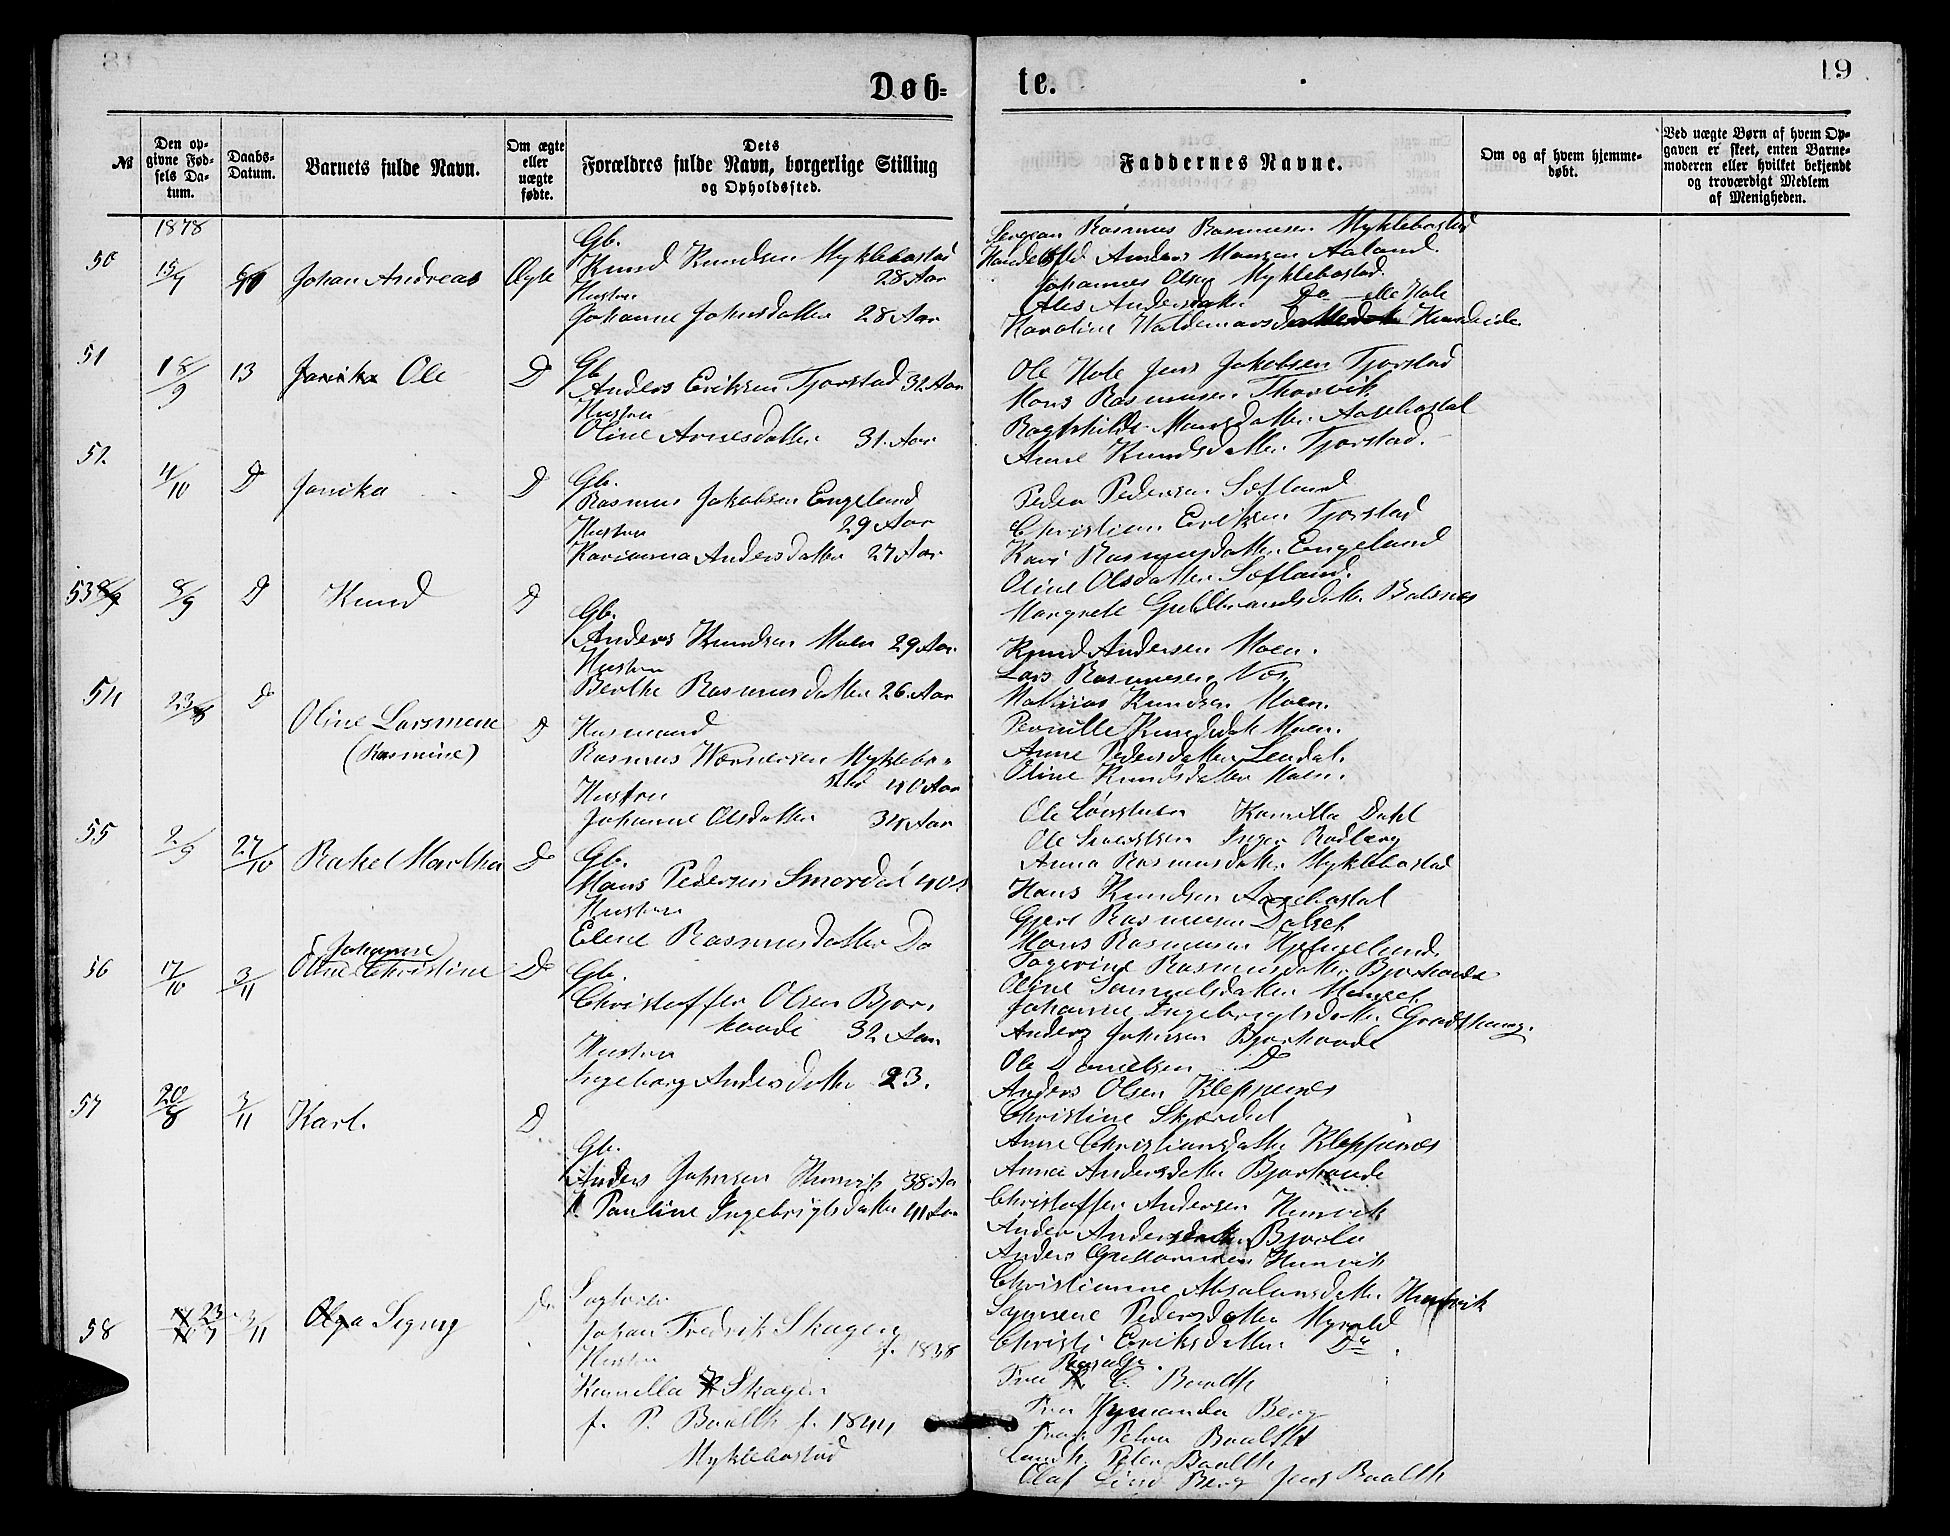 18
19
Døb-
te.
№
Den op-
givne Fød-
sels Da-
tum.
Daabs-
Datum.
Barnets fulde Navn.
Om ægte
eller
uægte
fødte.
Dets
Forældres fulde Navn, borgerlige Stilling
og Opholdssted.
Faddernes Navne.
Om og af hvem hjemme-
døbt.
Ved uægte Børn af hvem Op-
gaven er skeet, enten Barne-
moderen eller hvilket bekjendt
og troværdigt Medlem
af Menigheden.
1878
50
15/9
Johan Andreas
Ægte
Gb.
Knud Knudsen Myklebostad
28 Aar
Hustru
Johanne Johnsdatter 28 Aar
Rasmus Rasmusen Myklebostad
Anders Monsen Aaland
Johannes Olsen Myklebostad
Andersdatter Do Hole
Karoline
51
18/9
13
Janika Ole
Do
Gb
Anders Eriksen Tjorstad 32 Aar
Hustru
Oline Arnesdatter 31 Aar
Ole Hole Jens Jakobsen Tjorstad
Mons Rasmusen Thorvik
Ragnhilde Monsdatter
Anne Knudsdatter Tjorstad.
52.
4/10
Do
Janika
Do
Gb.
Rasmus Jakobsen Engeland
Hustru 29 Aar
Karianna Andersdatter 27 Aar
Peder Pedersen Sofland
Christian Eriksen Tjorstad
Kari Rasmusdatter Engeland
Oline Olsdatter Sofland.
Margrete Guldbrandsdatter Balsnes
53
8/9
Do
Knud
Do
Gb.
Anders Knudsen Moen 29 Aar
Hustru
Berthe Rasmusdatter 26 Aar
Knud Andersen Moen.
Lars Rasmusen
Mathias Knudsen Moen.
Pernille Knudsdatter Moen.
Anne Pedersdatter
Oline Knudsdatter Moen.
54
23/8
Do
Oline Larsmene
(Rasmine)
Do
Husmand
Rasmus Wernersen Myklebo-
stad 40 Aar
Hustru
Johanne Olsdatter 34 Aar
Ole Kamilla Dahl
Ole Inger
Anna Rasmusdatter Myklebostad
55
2/9
27/10
Rakel Marthea
Do
Gb.
Mons Pedersen Smordal 40
Hustru
Elene Rasmusdatter Do
Hans Knudsen
Gjert Rasmusen Dalset
Mons Rasmusen
Rasmusdatter Bjorkaade
Oline Samuelsdatter
56
17/10
3/11
Johanne
Oline Christine
Do
Gb.
Christoffer Olsen Bjor-
kaade 32 Aar
Hustru
Ingeborg Andersdatter 23.
Johanne Ingebrigtsdatter
Anders Johnsen Bjorkaade
Ole Danielsen Do
Anders Olsen Kleppenes
Christine Skjerdal
Anne Christiansdatter Kleppenes
57
20/8
3/11
Karl.
Do.
Gb.
Anders Johnsen Hunvik 38 Aar
H. Pauline Ingebrigtsdatter 41 Aar
Anna Andersdatter Bjorkaade
Christoffer Andersen Hunvik
Anders
Anders Hunvik
Christianne Absalonsdatter Hunvik
58
23/7
3/11
Olga Signy
Do
Sagfører
Johan Fredrik Skagen
f. 1838
Hustru
Kamella Skagen
f. P. Baalth f. 1844
Myklebostad
Pedersdatter Myrold
Christi Eriksdatter Do
Fru C. Baalth
Fru Berg
Petra Baalth
Peter Baalth
Olaf Lind Berg Jens Baalth